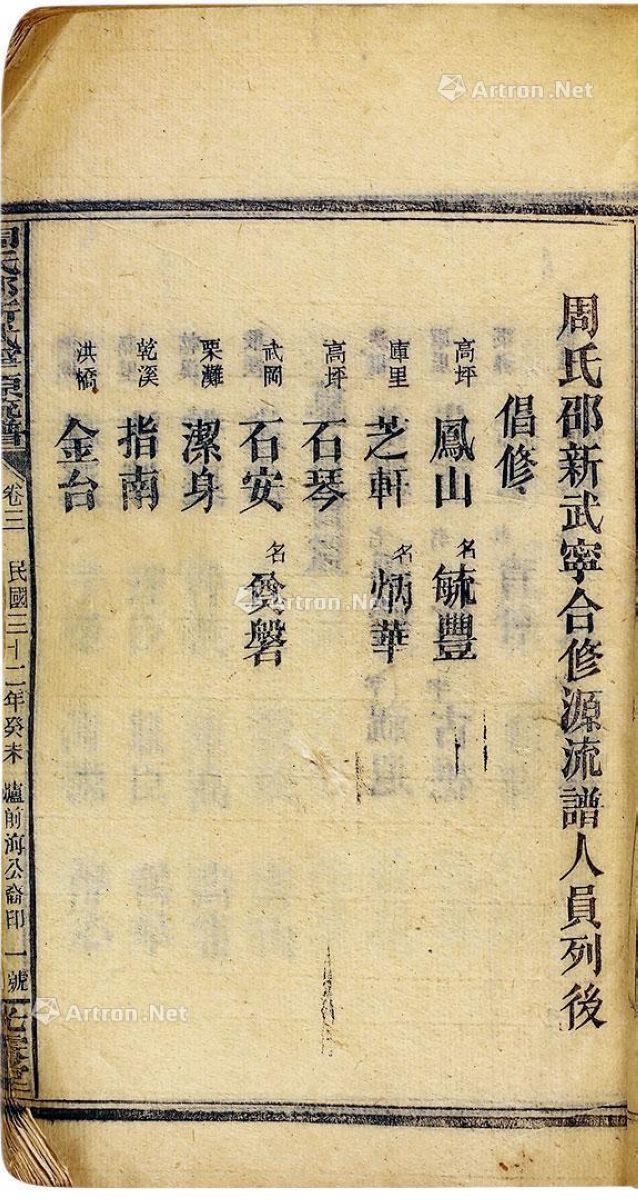 周氏邵新武寧合修源流譜人員列後
倡修
高坪 鳳山 名 毓豐
庫里 芝軒 名 炳華
高坪 石琴
武岡 石安 名 磐
栗灘 潔身
乾溪 指南
洪橋 金台
周氏邵新武寧源流譜 卷二 民國三十二年癸未 爐前海公裔印 一號
Artron.Net
Artron.Net
Artron.Net